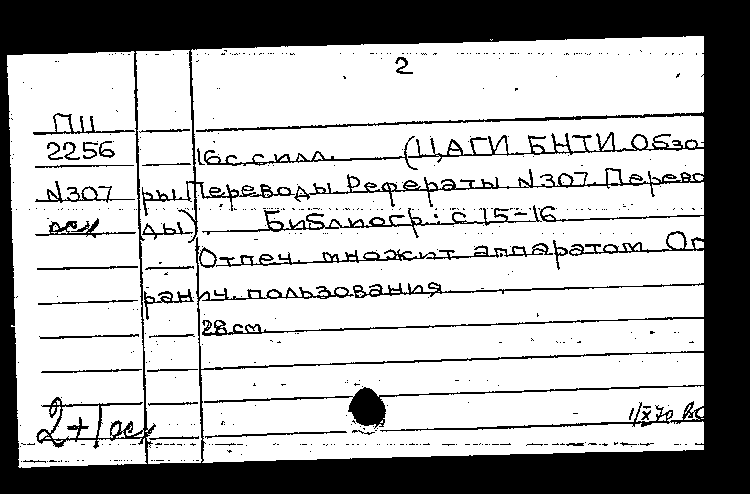 2
П11
2256 16с с илл. (ЦАГИ БНТИ Обзо-
N307 ры. Переводы. Рефераты. N307. Перево
осн ды) Библиогр: с 15-16
Отпеч. множит аппаратом Ог
ранич. пользования
28 см
2+1осн
1/X 70